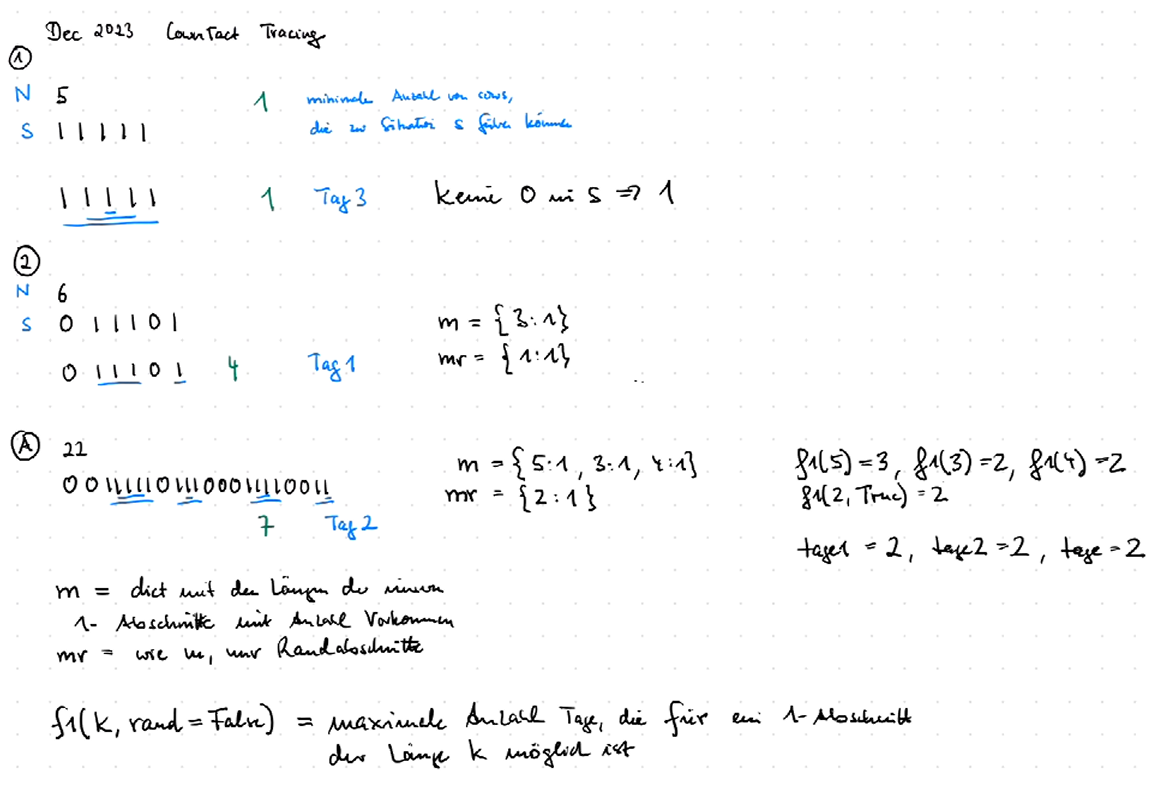 Dec 2023 Cowntact Tracing
①
N 5 1 minimale Anzahl von cows,
S 1 1 1 1 1 die zur Situation s führen können
1 1 1 1 1 1 Tag 3 keine 0 in s => 1
②
N 6
S 0 1 1 1 0 1 m = {3:1}
0 1 1 1 0 1 4 Tag 1 mr = {1:1}
Ⓐ 22
m = {5:1, 3:1, 4:1} f1(5) = 3, f1(3) = 2, f1(4) = 2
0011111011100011110011 mr = {2:1} f1(2, True) = 2
7 Tag 2 tage1 = 2, tage2 = 2, tage = 2
m = dict mit den Längen der inneren
1-Abschnitte mit Anzahl Vorkommen
mr = wie m, nur Randabschnitte
f1(k, rand=False) = maximale Anzahl Tage, die für ein 1-Abschnitt
der Länge k möglich ist